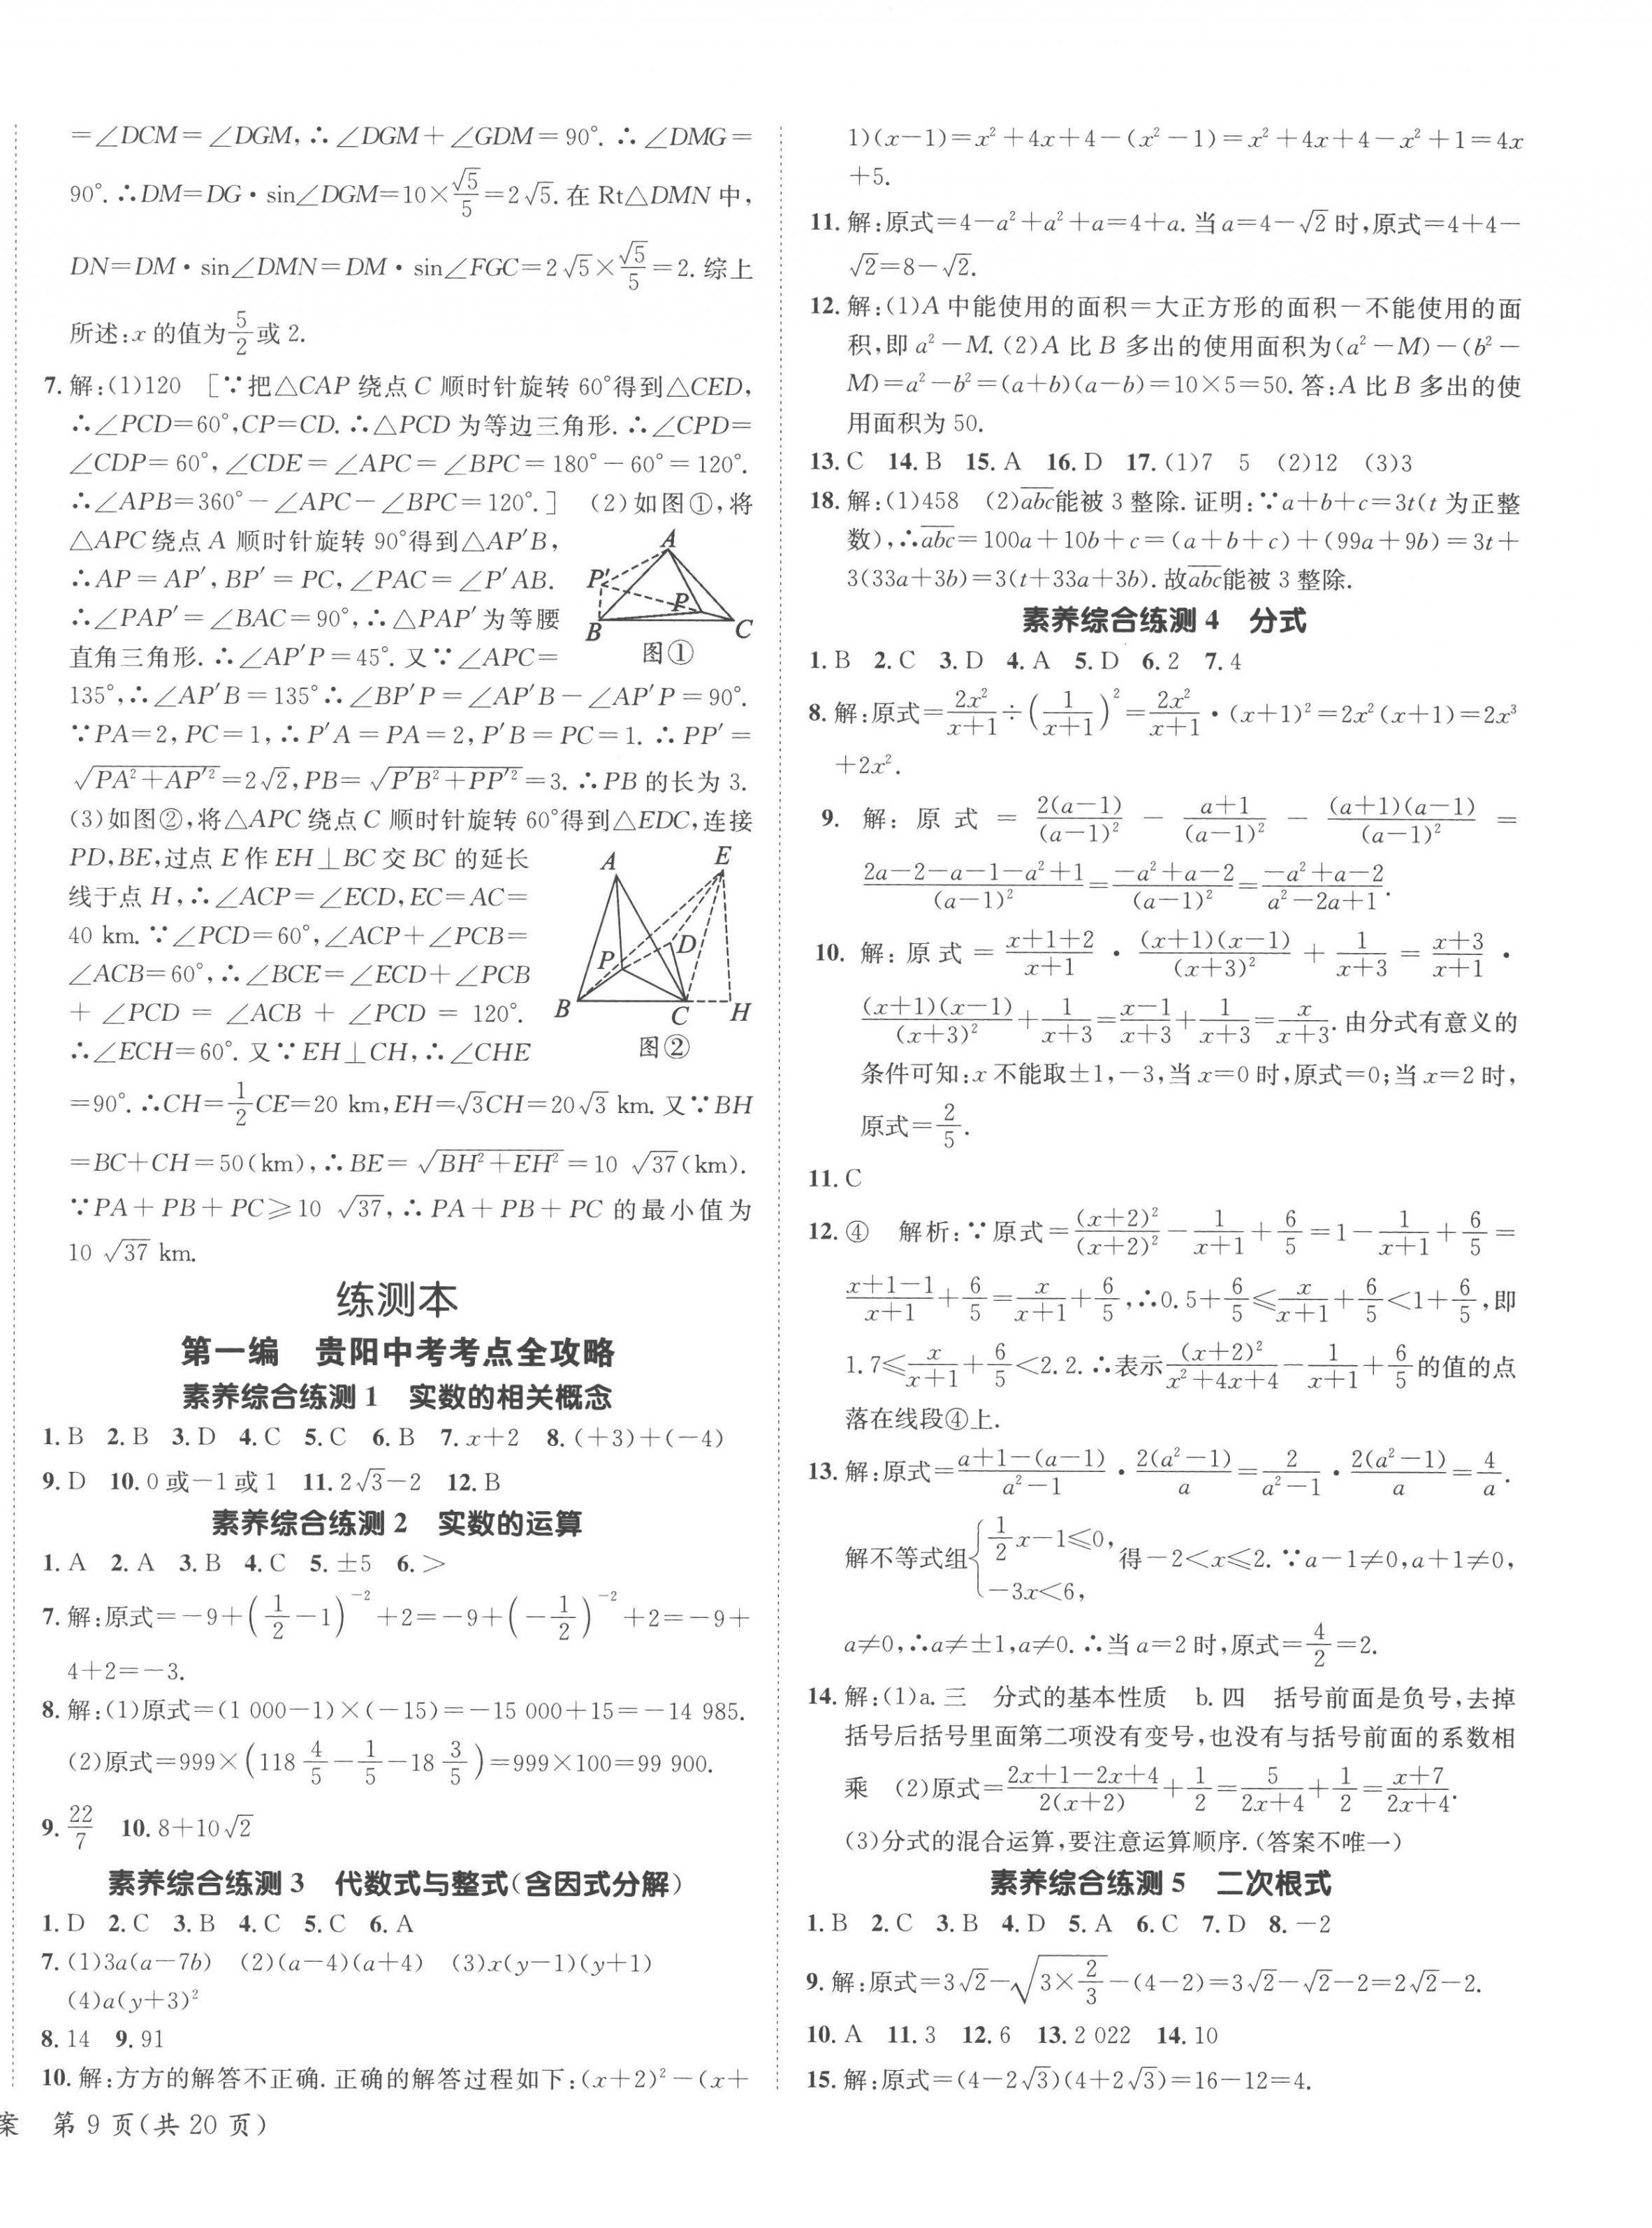 =∠DCM=∠DGM,∴∠DGM+∠GDM=90°.∴∠DMG=
90°.∴DM=DG·sin∠DGM=10×√5/5=2√5.在 Rt△DMN 中,
DN=DM·sin∠DMN=DM·sin∠FGC=2√5×√5/5=2.综上
所述:x 的值为5/2或 2.
7.解:(1)120 [∵把△CAP 绕点 C 顺时针旋转 60°得到△CED,
∴∠PCD=60°,CP=CD.∴△PCD 为等边三角形.∴∠CPD=
∠CDP=60°,∠CDE=∠APC=∠BPC=180°-60°=120°.
∴∠APB=360°-∠APC-∠BPC=120°.] (2)如图①,将
△APC绕点 A 顺时针旋转 90°得到△AP′B,
∴AP=AP′,BP′=PC,∠PAC=∠P′AB.
∴∠PAP′=∠BAC=90°,∴△PAP′为等腰
直角三角形.∴∠AP′P=45°.又∵∠APC=
A
P′
P
B
C
图①
135°,∴∠AP′B=135°∴∠BP′P=∠AP′B-∠AP′P=90°.
∵PA=2,PC=1,∴P′A=PA=2,P′B=PC=1.∴PP′=
√(PA²+AP′²)=2√2,PB=√(P′B²+PP′²)=3.∴PB 的长为 3.
(3)如图②,将△APC 绕点 C 顺时针旋转 60°得到△EDC,连接
PD,BE,过点 E 作 EH⊥BC 交 BC 的延长
线于点 H,∴∠ACP=∠ECD,EC=AC=
40 km.∵∠PCD=60°,∠ACP+∠PCB=
∠ACB=60°,∴∠BCE=∠ECD+∠PCB
+∠PCD=∠ACB+∠PCD=120°.
∴∠ECH=60°.又∵EH⊥CH,∴∠CHE
A
E
D
P
B
C
H
图②
=90°.∴CH=1/2CE=20 km,EH=√3CH=20√3 km.又∵BH
=BC+CH=50(km),∴BE=√(BH²+EH²)=10 √37(km).
∵PA+PB+PC≥10 √37,∴PA+PB+PC 的最小值为
10 √37 km.
练测本
第一编 贵阳中考考点全攻略
素养综合练测 1 实数的相关概念
1.B 2.B 3.D 4.C 5.C 6.B 7.x+2 8.(+3)+(-4)
9.D 10.0 或-1 或 1 11.2√3-2 12.B
素养综合练测 2 实数的运算
1.A 2.A 3.B 4.C 5.±5 6.>
7.解:原式=-9+(1/2-1)⁻²+2=-9+(-1/2)⁻²+2=-9+
4+2=-3.
8.解:(1)原式=(1 000-1)×(-15)=-15 000+15=-14 985.
(2)原式=999×(118 4/5-1/5-18 3/5)=999×100=99 900.
9.22/7 10.8+10√2
素养综合练测 3 代数式与整式(含因式分解)
1.D 2.C 3.B 4.C 5.C 6.A
7.(1)3a(a-7b) (2)(a-4)(a+4) (3)x(y-1)(y+1)
(4)a(y+3)²
8.14 9.91
10.解:方方的解答不正确.正确的解答过程如下:(x+2)²-(x+
案 第 9 页(共 20 页)
1)(x-1)=x²+4x+4-(x²-1)=x²+4x+4-x²+1=4x
+5.
11.解:原式=4-a²+a²+a=4+a.当 a=4-√2 时,原式=4+4-
√2=8-√2.
12.解:(1)A 中能使用的面积=大正方形的面积-不能使用的面
积,即 a²-M.(2)A 比 B 多出的使用面积为(a²-M)-(b²-
M)=a²-b²=(a+b)(a-b)=10×5=50.答:A 比 B 多出的使
用面积为 50.
13.C 14.B 15.A 16.D 17.(1)7 5 (2)12 (3)3
18.解:(1)458 (2)a̅b̅c̅能被 3 整除.证明:∵a+b+c=3t(t 为正整
数),∴a̅b̅c̅=100a+10b+c=(a+b+c)+(99a+9b)=3t+
3(33a+3b)=3(t+33a+3b).故a̅b̅c̅能被 3 整除.
素养综合练测 4 分式
1.B 2.C 3.D 4.A 5.D 6.2 7.4
8.解:原式=2x²/(x+1)÷(1/(x+1))²=2x²/(x+1)·(x+1)²=2x²(x+1)=2x³
+2x².
9.解:原式=2(a-1)/(a-1)²-(a+1)/(a-1)²-(a+1)(a-1)/(a-1)²=
(2a-2-a-1-a²+1)/(a-1)²=(-a²+a-2)/(a-1)²=(-a²+a-2)/(a²-2a+1).
10.解:原式=(x+1+2)/(x+1)·(x+1)(x-1)/(x+3)²+1/(x+3)=(x+3)/(x+1)·
(x+1)(x-1)/(x+3)²+1/(x+3)=(x-1)/(x+3)+1/(x+3)=x/(x+3).由分式有意义的
条件可知:x 不能取±1,-3,当 x=0 时,原式=0;当 x=2 时,
原式=2/5.
11.C
12.④ 解析:∵原式=(x+2)²/(x+2)²-1/(x+1)+6/5=1-1/(x+1)+6/5=
(x+1-1)/(x+1)+6/5=x/(x+1)+6/5,∴0.5+6/5≤x/(x+1)+6/5<1+6/5,即
1.7≤x/(x+1)+6/5<2.2.∴表示(x+2)²/(x²+4x+4)-1/(x+1)+6/5的值的点
落在线段④上.
13.解:原式=(a+1-(a-1))/(a²-1)·2(a²-1)/a=2/(a²-1)·2(a²-1)/a=4/a.
解不等式组{1/2x-1≤0, -3x<6,得-2<x≤2.∵a-1≠0,a+1≠0,
a≠0,∴a≠±1,a≠0.∴当 a=2 时,原式=4/2=2.
14.解:(1)a.三 分式的基本性质 b.四 括号前面是负号,去掉
括号后括号里面第二项没有变号,也没有与括号前面的系数相
乘 (2)原式=(2x+1-2x+4)/(2(x+2))+1/2=5/(2x+4)+1/2=(x+7)/(2x+4).
(3)分式的混合运算,要注意运算顺序.(答案不唯一)
素养综合练测 5 二次根式
1.B 2.C 3.B 4.D 5.A 6.C 7.D 8.-2
9.解:原式=3√2-√(3×2/3)-(4-2)=3√2-√2-2=2√2-2.
10.A 11.3 12.6 13.2 022 14.10
15.解:原式=(4-2√3)(4+2√3)=16-12=4.